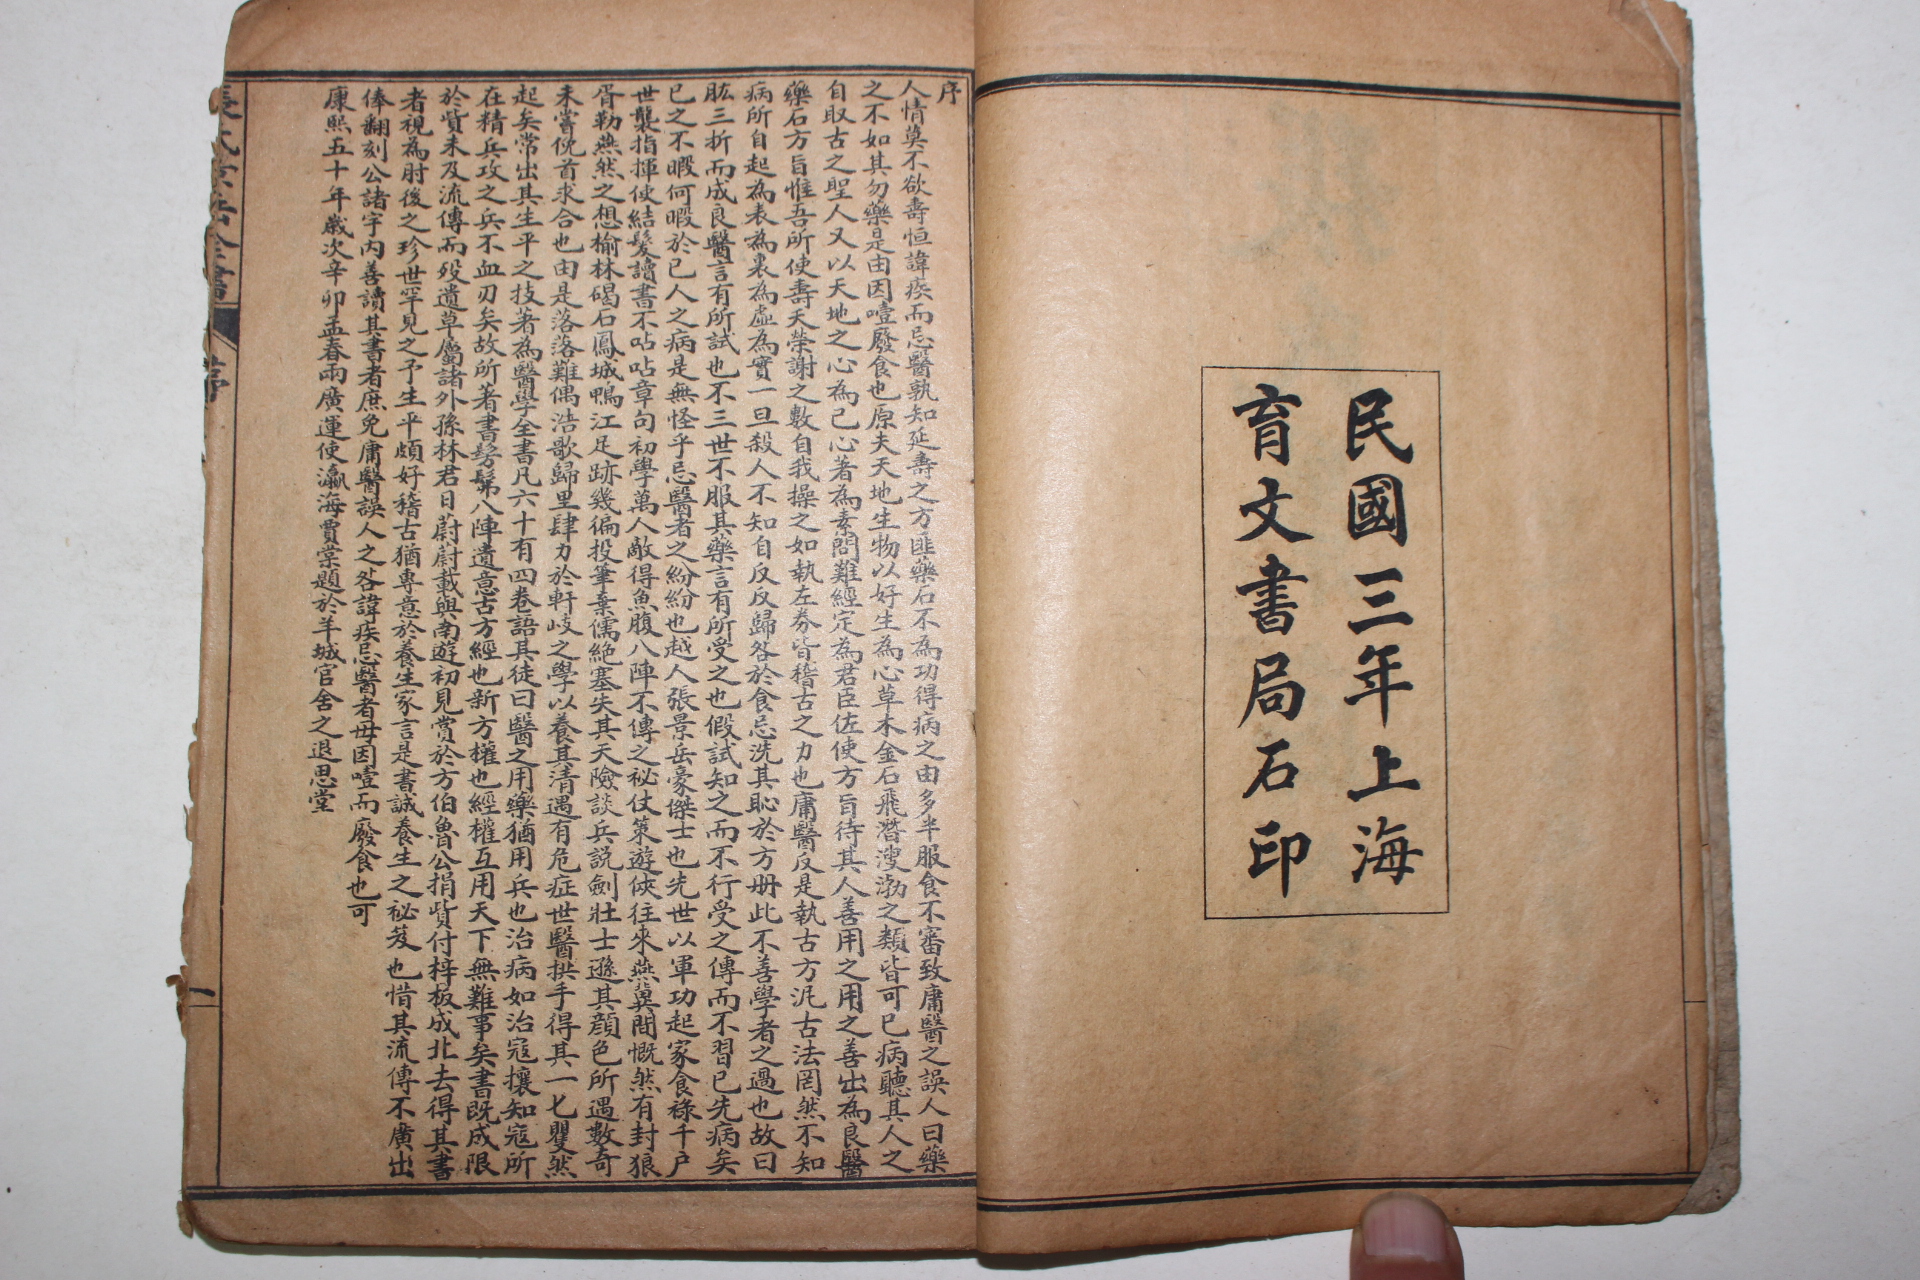 民國三年上海
育文書局石印
序
人情莫不欲壽恒諱疾而忌醫孰知延壽之方匪藥石不為功得病之由多半服食不審致庸醫之誤人曰藥
之不如其勿藥是由因噎廢食也原夫天地生物以好生為心草木金石飛潛溲渤之類皆可已病聽其人之
自取古之聖人又以天地之心為己心著為素問難經定為君臣佐使方旨待其人善用之用之善出為良醫
藥石方旨惟吾所使壽夭榮謝之數自我操之如執左券皆稽古之力也庸醫反是執古方泥古法罔然不知
病所自起為表為裏為虛為實一旦殺人不知自反反歸咎於食忌洗其恥於方册此不善學者之過也故曰
肱三折而成良醫言有所試也不三世不服其藥言有所受之也假試知之而不行受之傳而不習已先病矣
已之不暇何暇於已人之病是無怪乎忌醫者之紛紛也越人張景岳豪傑士也先世以軍功起家食祿千户
世襲指揮使結髮讀書不呫呫章句初學萬人敵得魚腹八陣不傳之祕仗策遊俠往來燕冀間慨然有封狼
胥勒燕然之想榆林碣石鳳城鴨江足跡幾徧投筆棄儒絶塞失其天險談兵説劍壯士遜其顔色所遇數奇
未嘗俛首求合也由是落落難偶浩歌歸里肆力於軒岐之學以養其清遇有危症世醫拱手得其一七矍然
起矣常出其生平之技著為醫學全書凡六十有四卷語其徒曰醫之用藥猶用兵也治病如治寇攘知寇所
在精兵攻之兵不血刃矣故所著書髣髴八陣遺意古方經也新方權也經權互用天下無難事矣書既成限
於貲未及流傳而殁遺草屬諸外孫林君日蔚蔚載與南遊初見賞於方伯魯公捐貲付梓板成北去得其書
者視為肘後之珍世罕見之予生平頗好稽古猶專意於養生家言是書誠養生之祕笈也惜其流傳不廣出
俸翻刻公諸宇内善讀其書者庶免庸醫誤人之咎諱疾忌醫者毋因噎而廢食也可
康熙五十年歲次辛卯孟春兩廣運使瀛海賈棠題於羊城官舍之退思堂
序
一